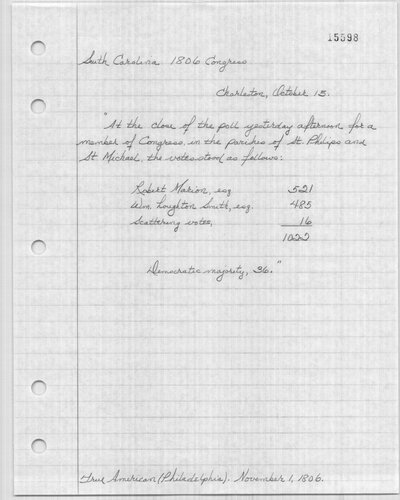 15598
South Carolina 1806 Congress
Charleston, October 15.
"At the close of the poll yesterday afternoon for a
member of Congress, in the parishes of St. Philips and
St Michael, the votes stood as follows:
Robert Marion, esq 521
Wm. Loughton Smith, esq. 485
Scattering votes, 16
1022
Democratic majority, 36."
True American (Philadelphia). November 1, 1806.